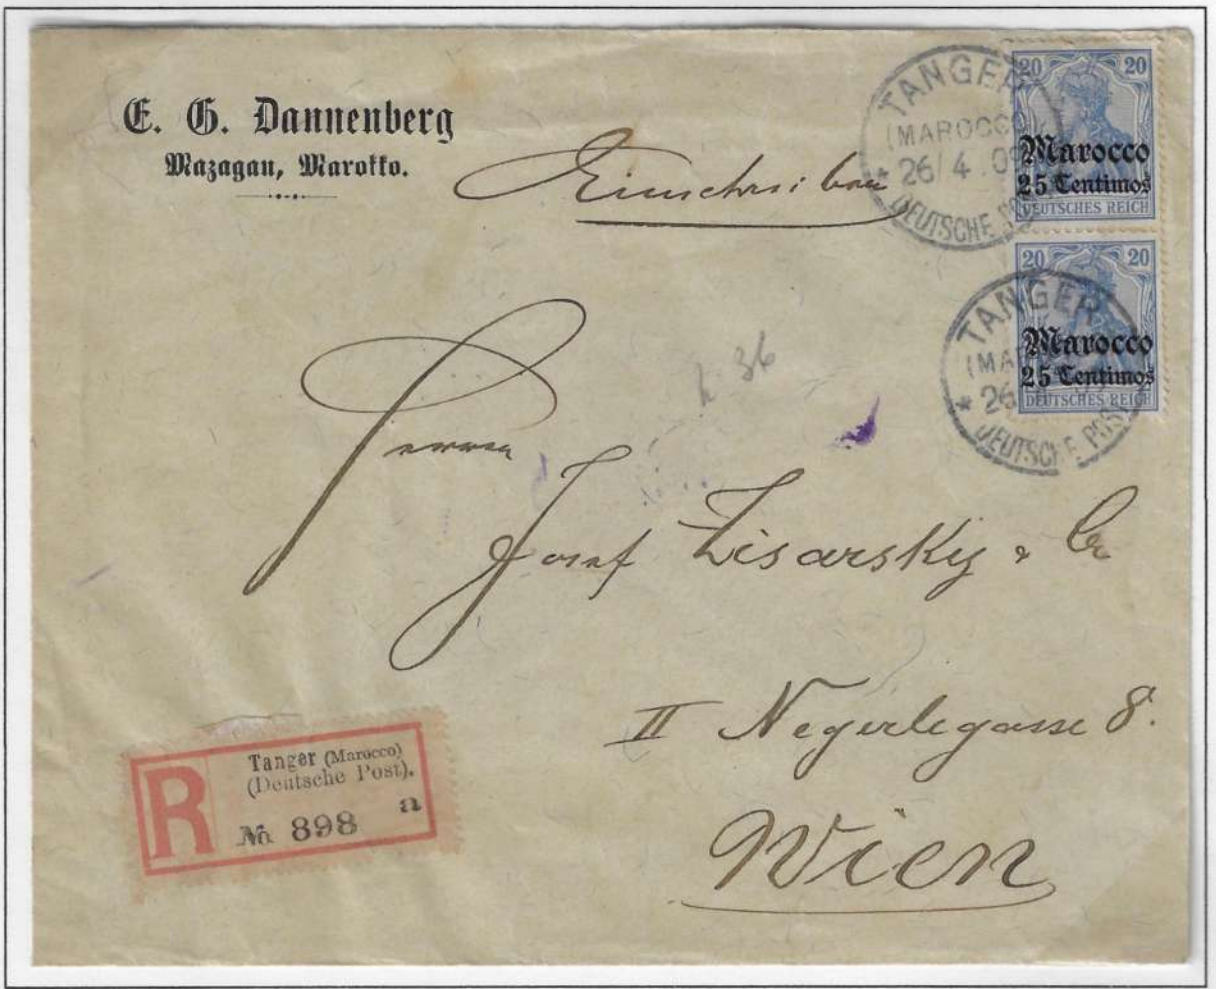 E. G. Dannenberg
Mazagan, Marokko.
Einschreiben
TANGER
(MAROCCO)
26/4.09
* DEUTSCHE POST
20 20
Marocco
25 Centimos
DEUTSCHES REICH
20 20
Marocco
25 Centimos
DEUTSCHES REICH
TANGER
(MAR
26
* DEUTSCHE POST
36
Herren
Josef Zisarskij & Co
II Negerlegasse 8.
Wien
R
Tanger (Marocco)
(Deutsche Post).
a
No. 898